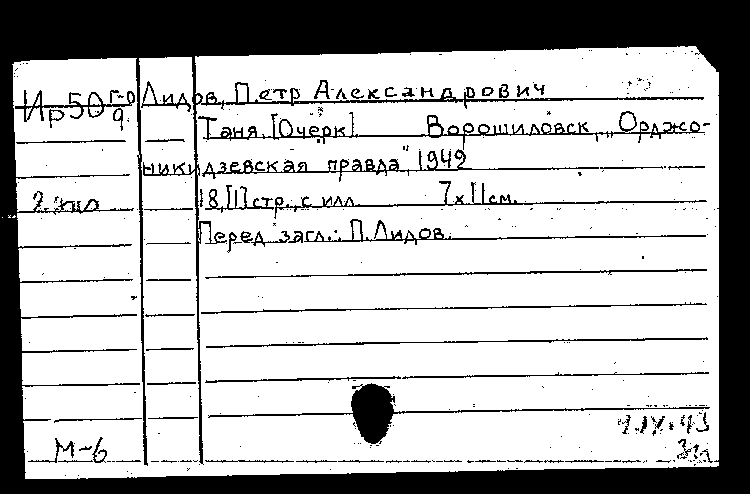 Ир50 г-9 Лидов, Петр Александрович
Таня. [Очерк]. Ворошиловск, „Орджо-
никидзевская правда", 1942
2 экз 18, [1] стр., с илл. 7х11 см.
Перед загл.: П. Лидов.
М-6